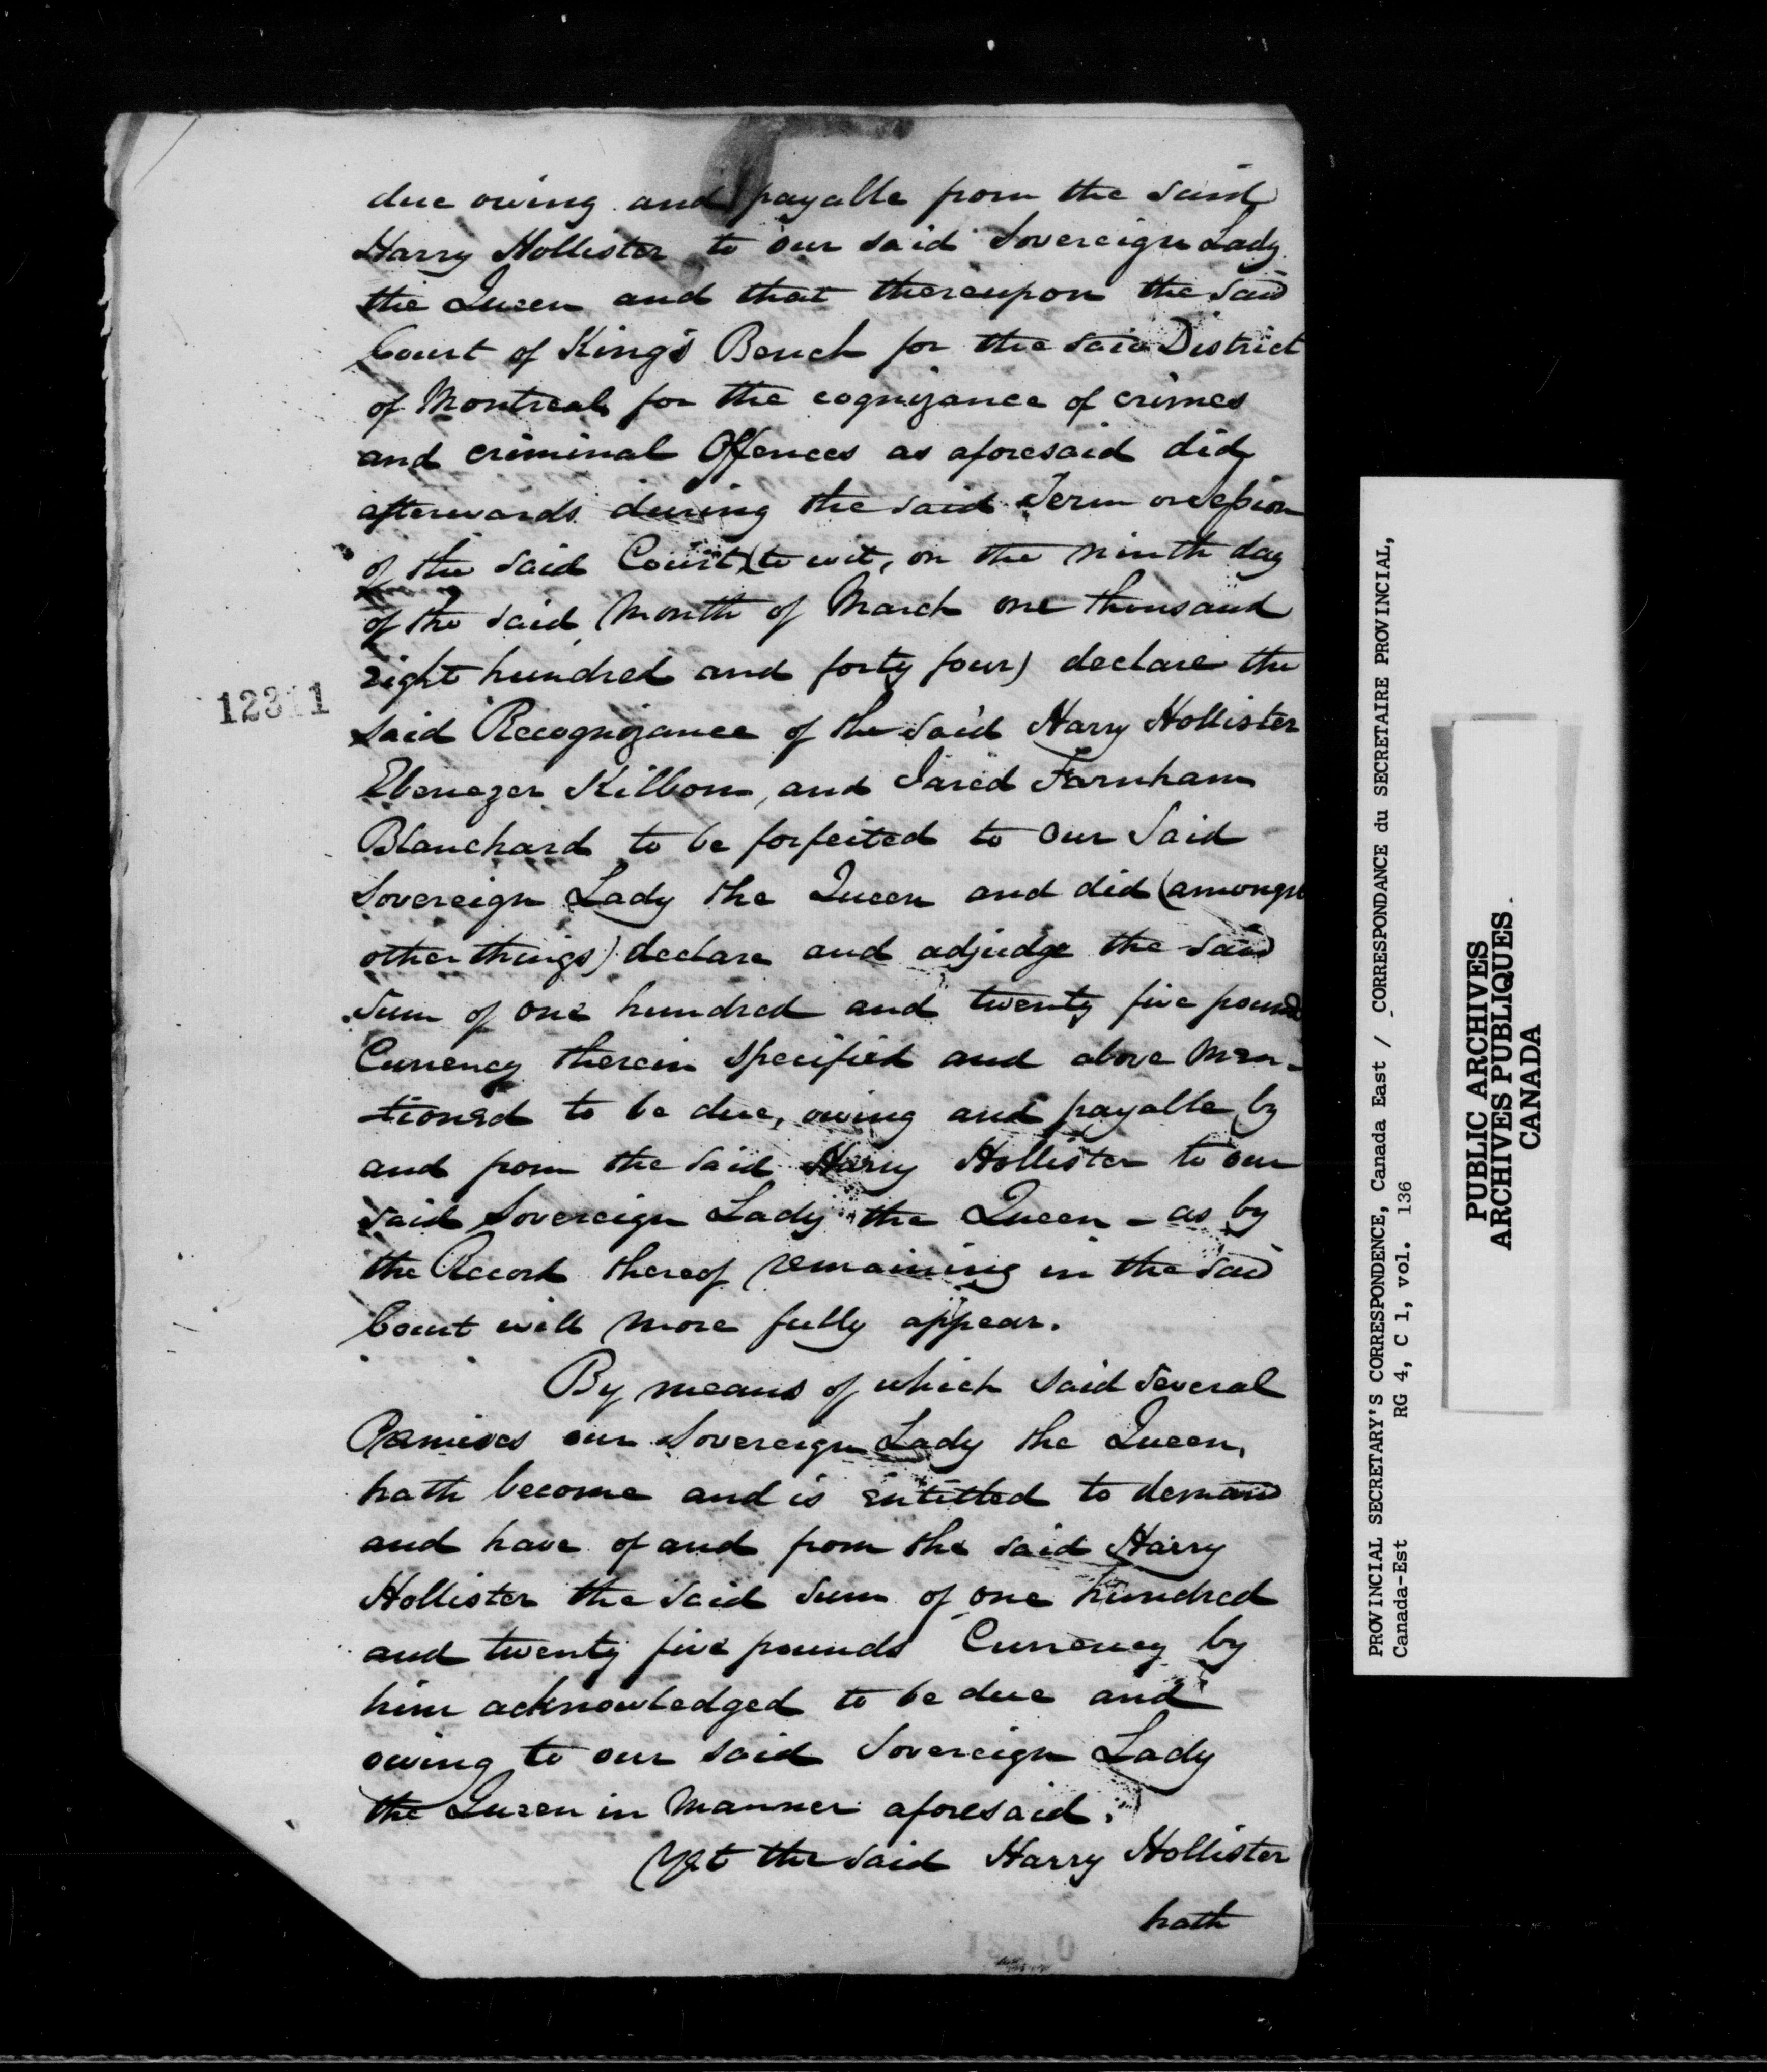 due owing and payable from the said
Harry Hollister to our said Sovereign Lady
the Queen and that thereupon the said
Court of King's Bench for the said District
of Montreal for the cognizance of crimes
and criminal Offences as aforesaid did
afterwards during the said Term or Session
of the said Court (to wit, on the ninth day
of the said Month of March one thousand
eight hundred and forty four) declare the
said Recognizance of the said Harry Hollister
Ebenezer Kilborn, and Jared Farnham
Blanchard to be forfeited to our Said
Sovereign Lady the Queen and did (amongst
other things) declare and adjudge the said
Sum of one hundred and twenty five pounds
Currency therein specified and above Men-
tioned to be due, owing and payable by
and from the said Harry Hollister to our
said Sovereign Lady the Queen - as by
the Record thereof remaining in the said
Court will more fully appear.
By means of which said several
Premises our Sovereign Lady the Queen,
hath become and is entitled to demand
and have of and from the said Harry
Hollister the said sum of one hundred
and twenty five pounds Currency by
him acknowledged to be due and
owing to our said Sovereign Lady
the Queen in Manner aforesaid.
Yet the said Harry Hollister
hath
12311
12310
PROVINCIAL SECRETARY'S CORRESPONDENCE, Canada East / CORRESPONDANCE du SECRETAIRE PROVINCIAL,
Canada-Est RG 4, C 1, vol. 136
PUBLIC ARCHIVES
ARCHIVES PUBLIQUES
CANADA